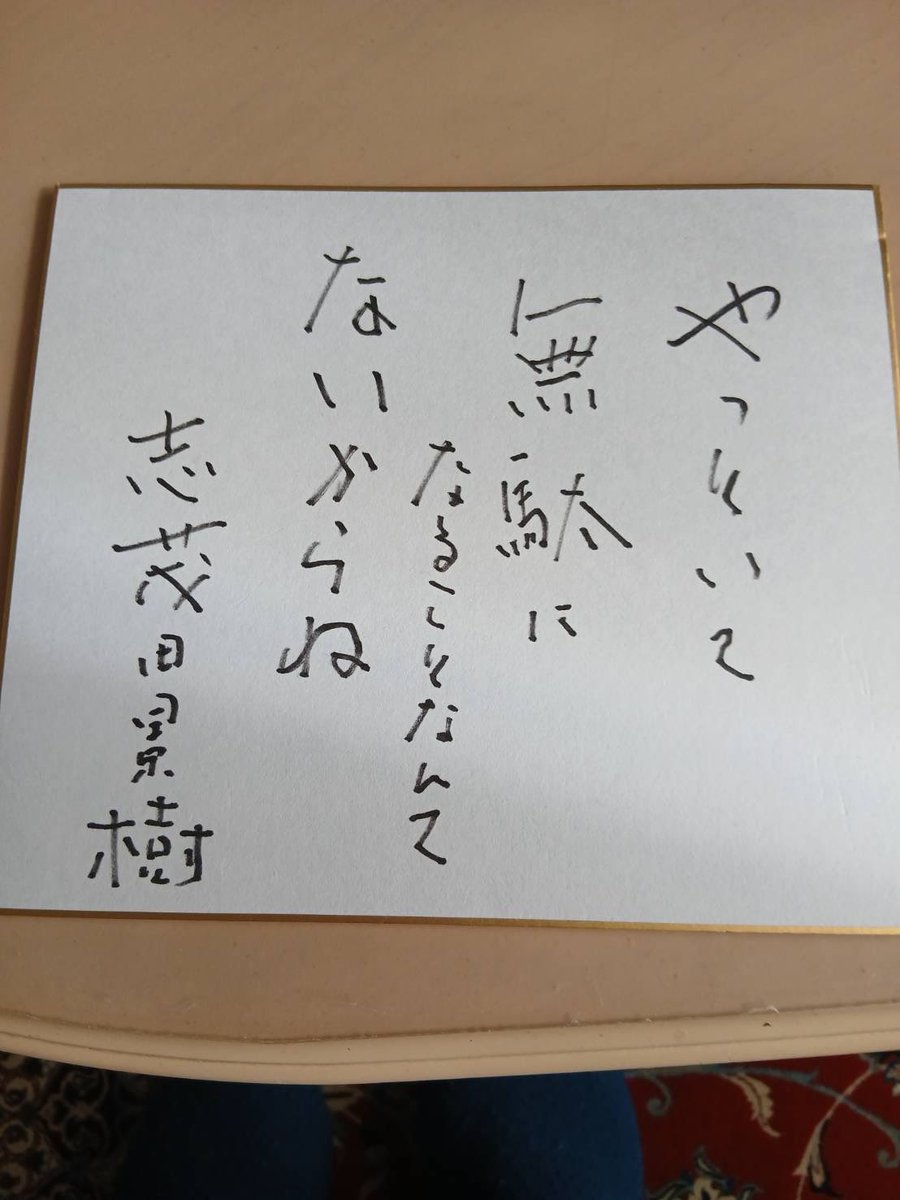 やっといて
無駄に
なることなんて
ないからね
志茂田景樹